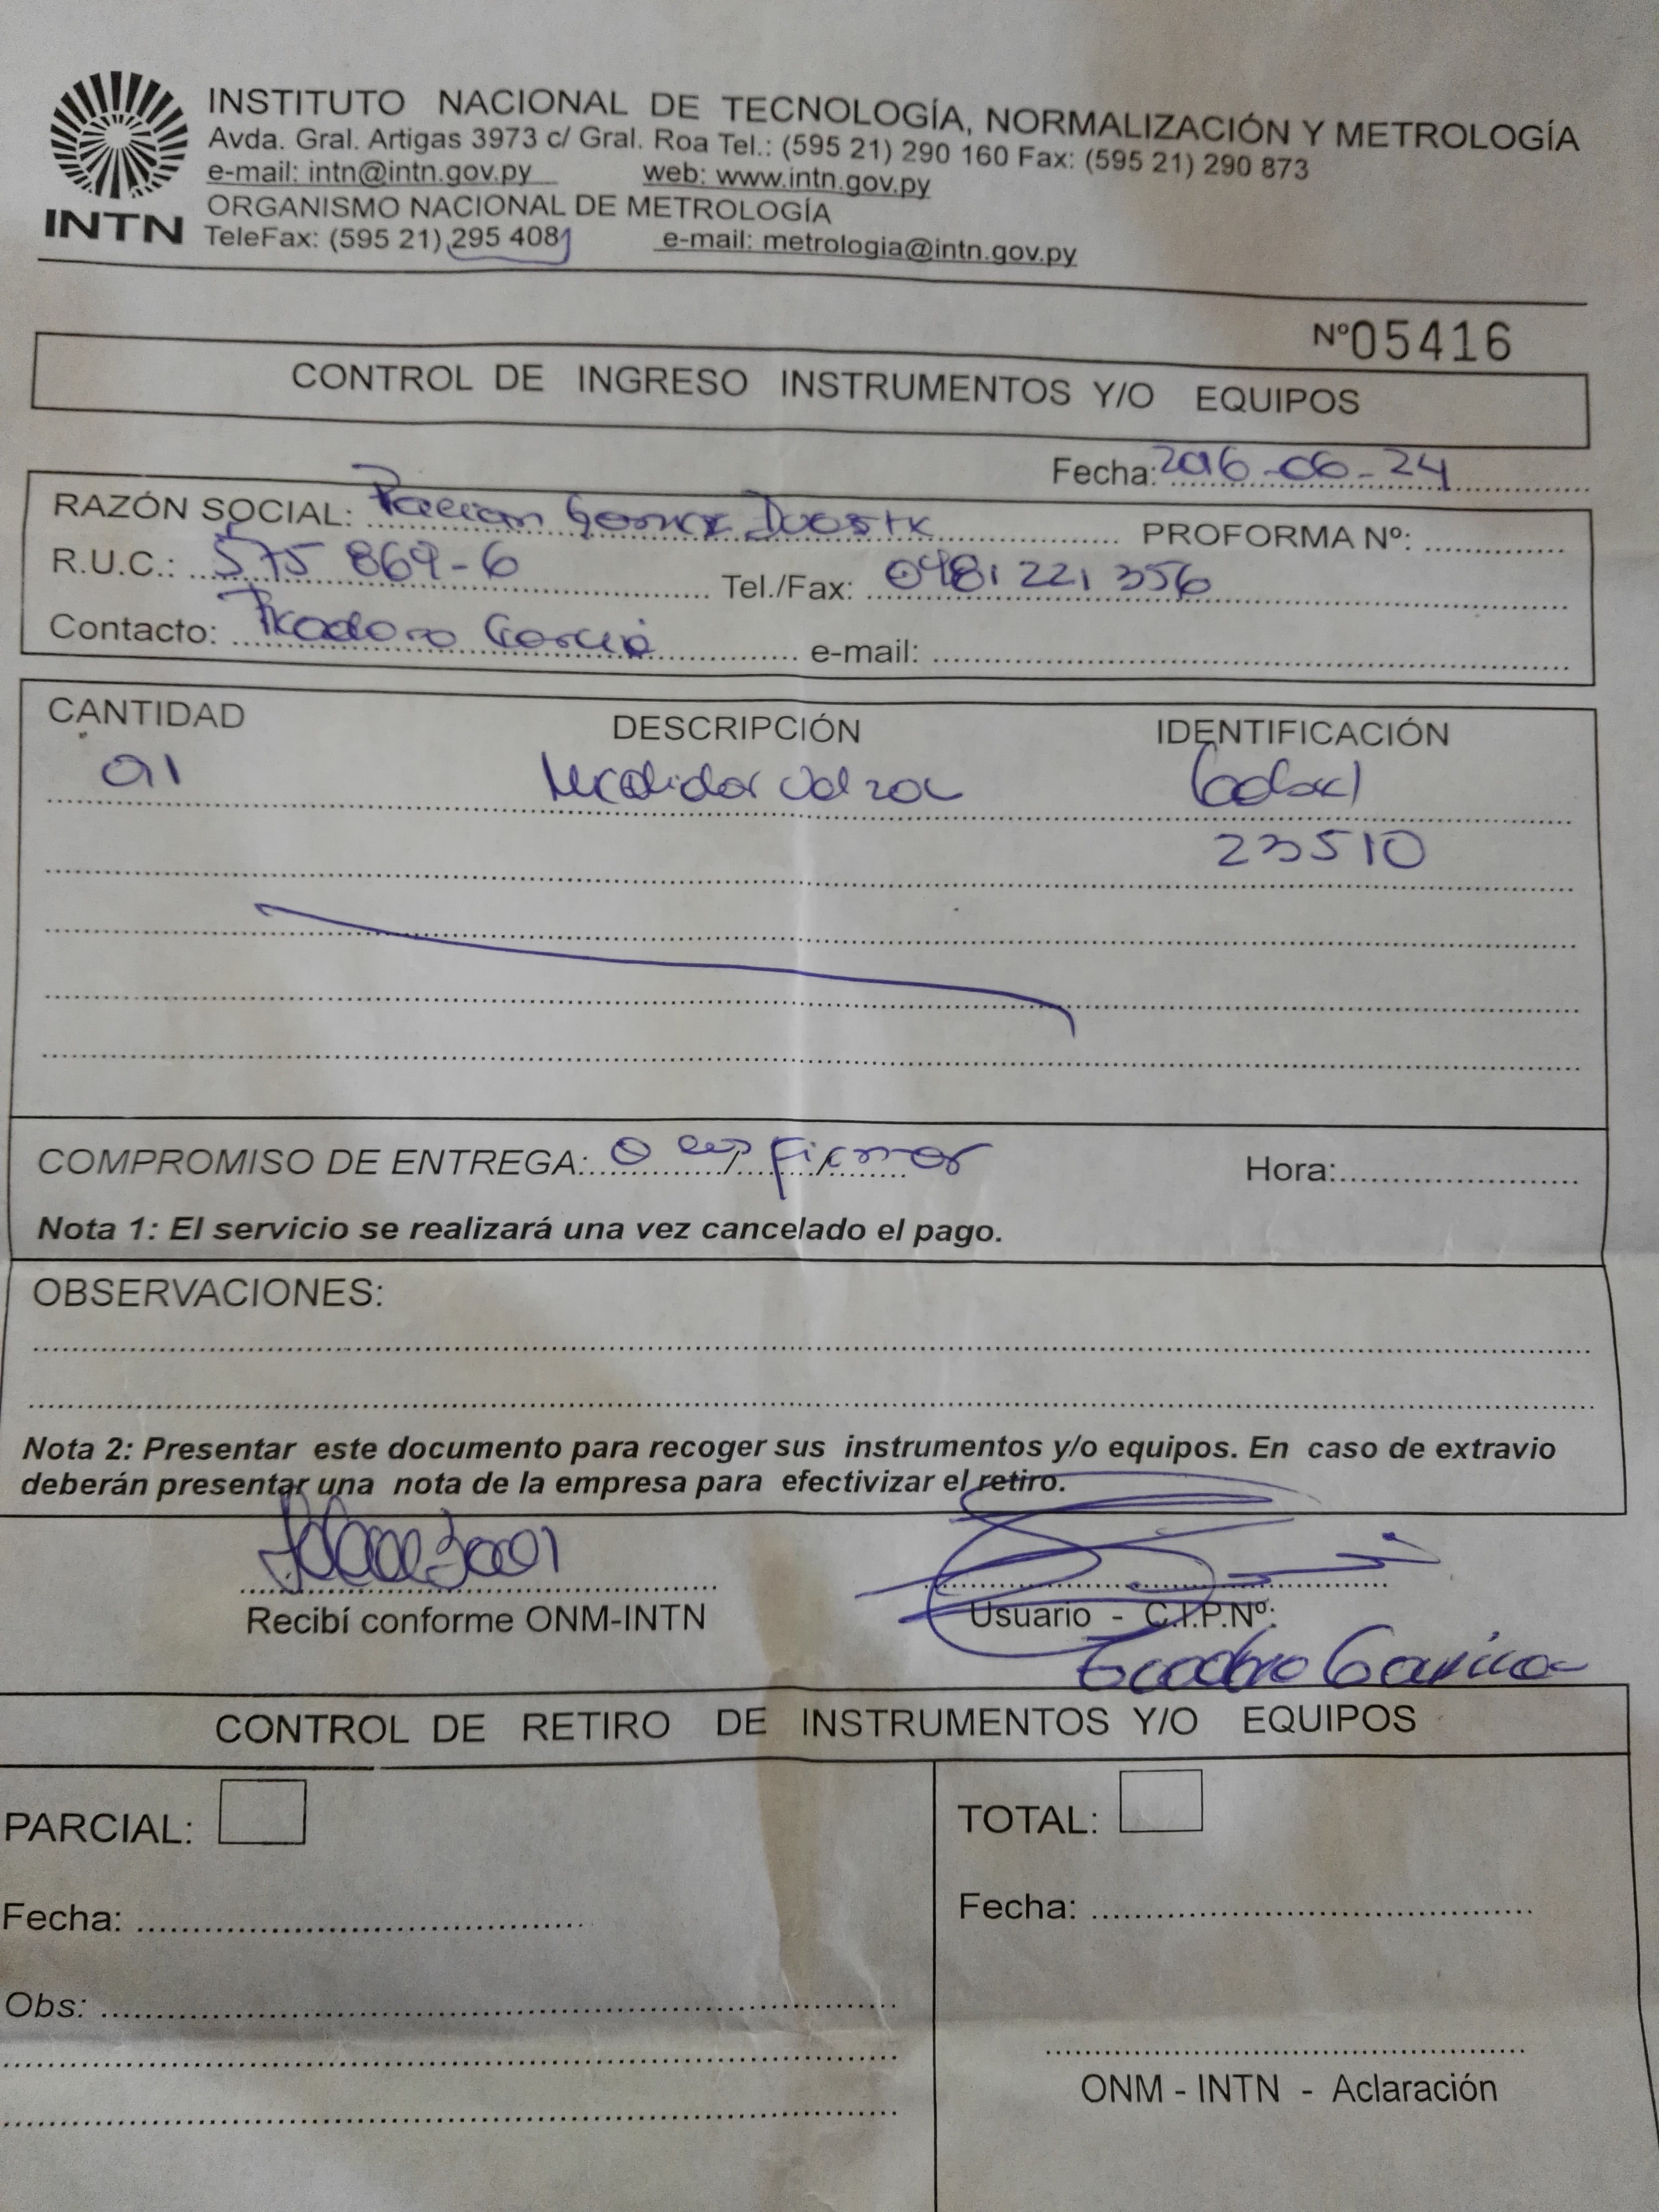 INSTITUTO NACIONAL DE TECNOLOGÍA, NORMALIZACIÓN Y METROLOGÍA
Avda. Gral. Artigas 3973 c/ Gral. Roa Tel.: (595 21) 290 160 Fax: (595 21) 290 873
e-mail: intn@intn.gov.py web: www.intn.gov.py
ORGANISMO NACIONAL DE METROLOGÍA
INTN TeleFax: (595 21) 295 408 e-mail: metrologia@intn.gov.py
Nº05416
CONTROL DE INGRESO INSTRUMENTOS Y/O EQUIPOS
Fecha: 2016-06-24
RAZÓN SOCIAL: PROFORMA Nº:
R.U.C.: 575 869-6 Tel./Fax: 0981 221 356
Contacto: Teodoro Garcia e-mail:
CANTIDAD DESCRIPCIÓN IDENTIFICACIÓN
01
23510
COMPROMISO DE ENTREGA: Hora:
Nota 1: El servicio se realizará una vez cancelado el pago.
OBSERVACIONES:
Nota 2: Presentar este documento para recoger sus instrumentos y/o equipos. En caso de extravio
deberán presentar una nota de la empresa para efectivizar el retiro.
Recibí conforme ONM-INTN Usuario - C.I.P.Nº:
Teodoro Garcia
CONTROL DE RETIRO DE INSTRUMENTOS Y/O EQUIPOS
PARCIAL: TOTAL:
Fecha: Fecha:
Obs:
ONM - INTN - Aclaración